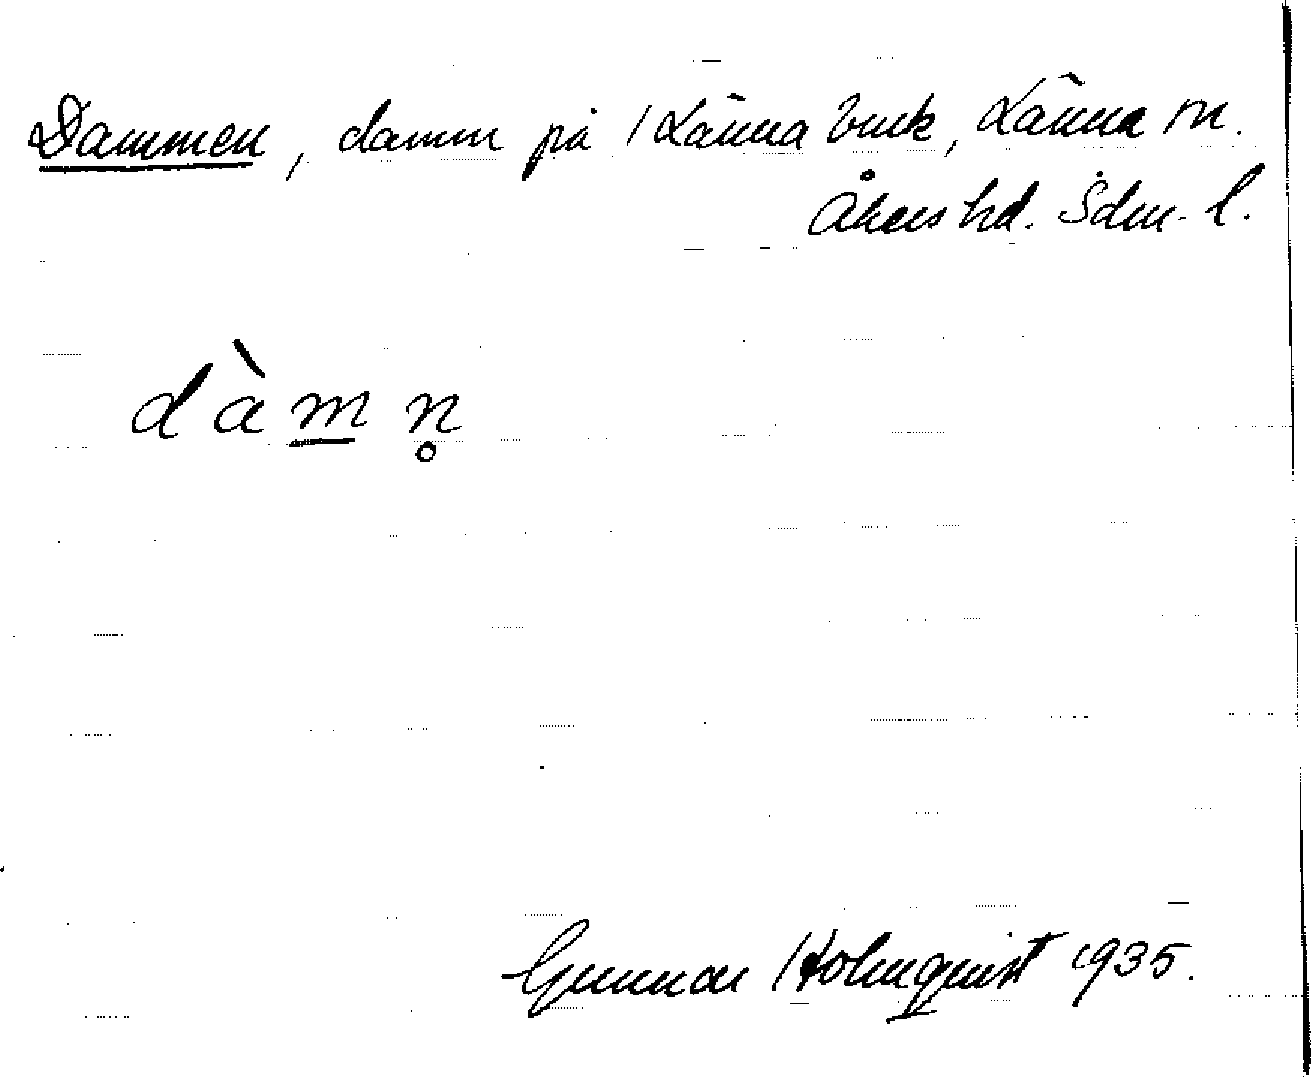 Dammen, damm på Länna bruk, Länna sn.
Åkers hd. Sdm. l.
dàm̲ n̥
Gunnar Holmquist 1935.